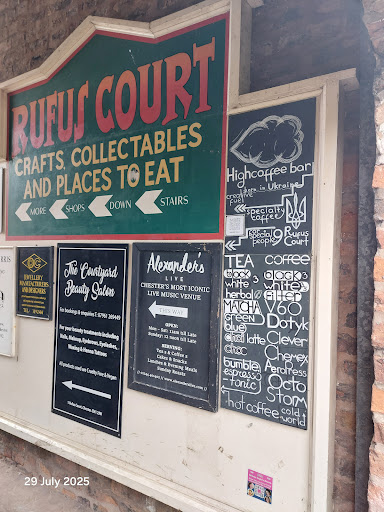 RUFUS COURT
CRAFTS, COLLECTABLES
AND PLACES TO EAT
MORE SHOPS DOWN STAIRS
JEWELLERY
MANUFACTURERS
AND DESIGNERS
The Courtyard
Beauty Salon
For bookings & enquiries T 07961 369485
For your beauty treatments including
Nails, Makeup, Eyebrows, Eyelashes,
Waxing & Henna Tattoos
All products used are Cruelty Free and Vegan
Alexander's
LIVE
CHESTER'S MOST ICONIC
LIVE MUSIC VENUE
THIS WAY
OPEN:
Mon - Sat: 11am till Late
Sunday: 12 noon till Late
SERVING:
Teas & Coffees
Cakes & Snacks
Lunches & Evening Meals
Sunday Roasts
High coffee bar
born in Ukraine
creative
fuel
specialty
coffee
for special
people
Rufus
Court
TEA
black
white
herbal
MATCHA
green
blue
chai latte
bumble
espresso-
tonic
coffee
black
white
FILTER
V60
Dotyk
Clever
Chemex
AeroPress
Octo
Storm
hot coffee cold
world
29 July 2025